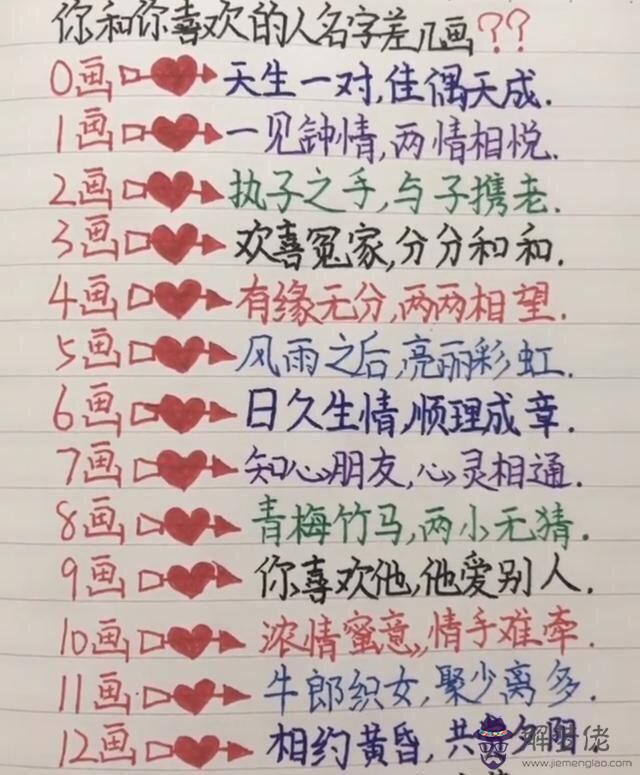 你和你喜欢的人名字差几画??
0画 天生一对,佳偶天成.
1画 一见钟情,两情相悦.
2画 执子之手,与子携老.
3画 欢喜冤家,分分和和.
4画 有缘无分,两两相望.
5画 风雨之后,亮丽彩虹.
6画 日久生情,顺理成章.
7画 知心朋友,心灵相通.
8画 青梅竹马,两小无猜.
9画 你喜欢他,他爱别人.
10画 浓情蜜意,情手难牵.
11画 牛郎织女,聚少离多.
12画 相约黄昏,共 夕阳.
解梦佬
www.jiemenglao.com